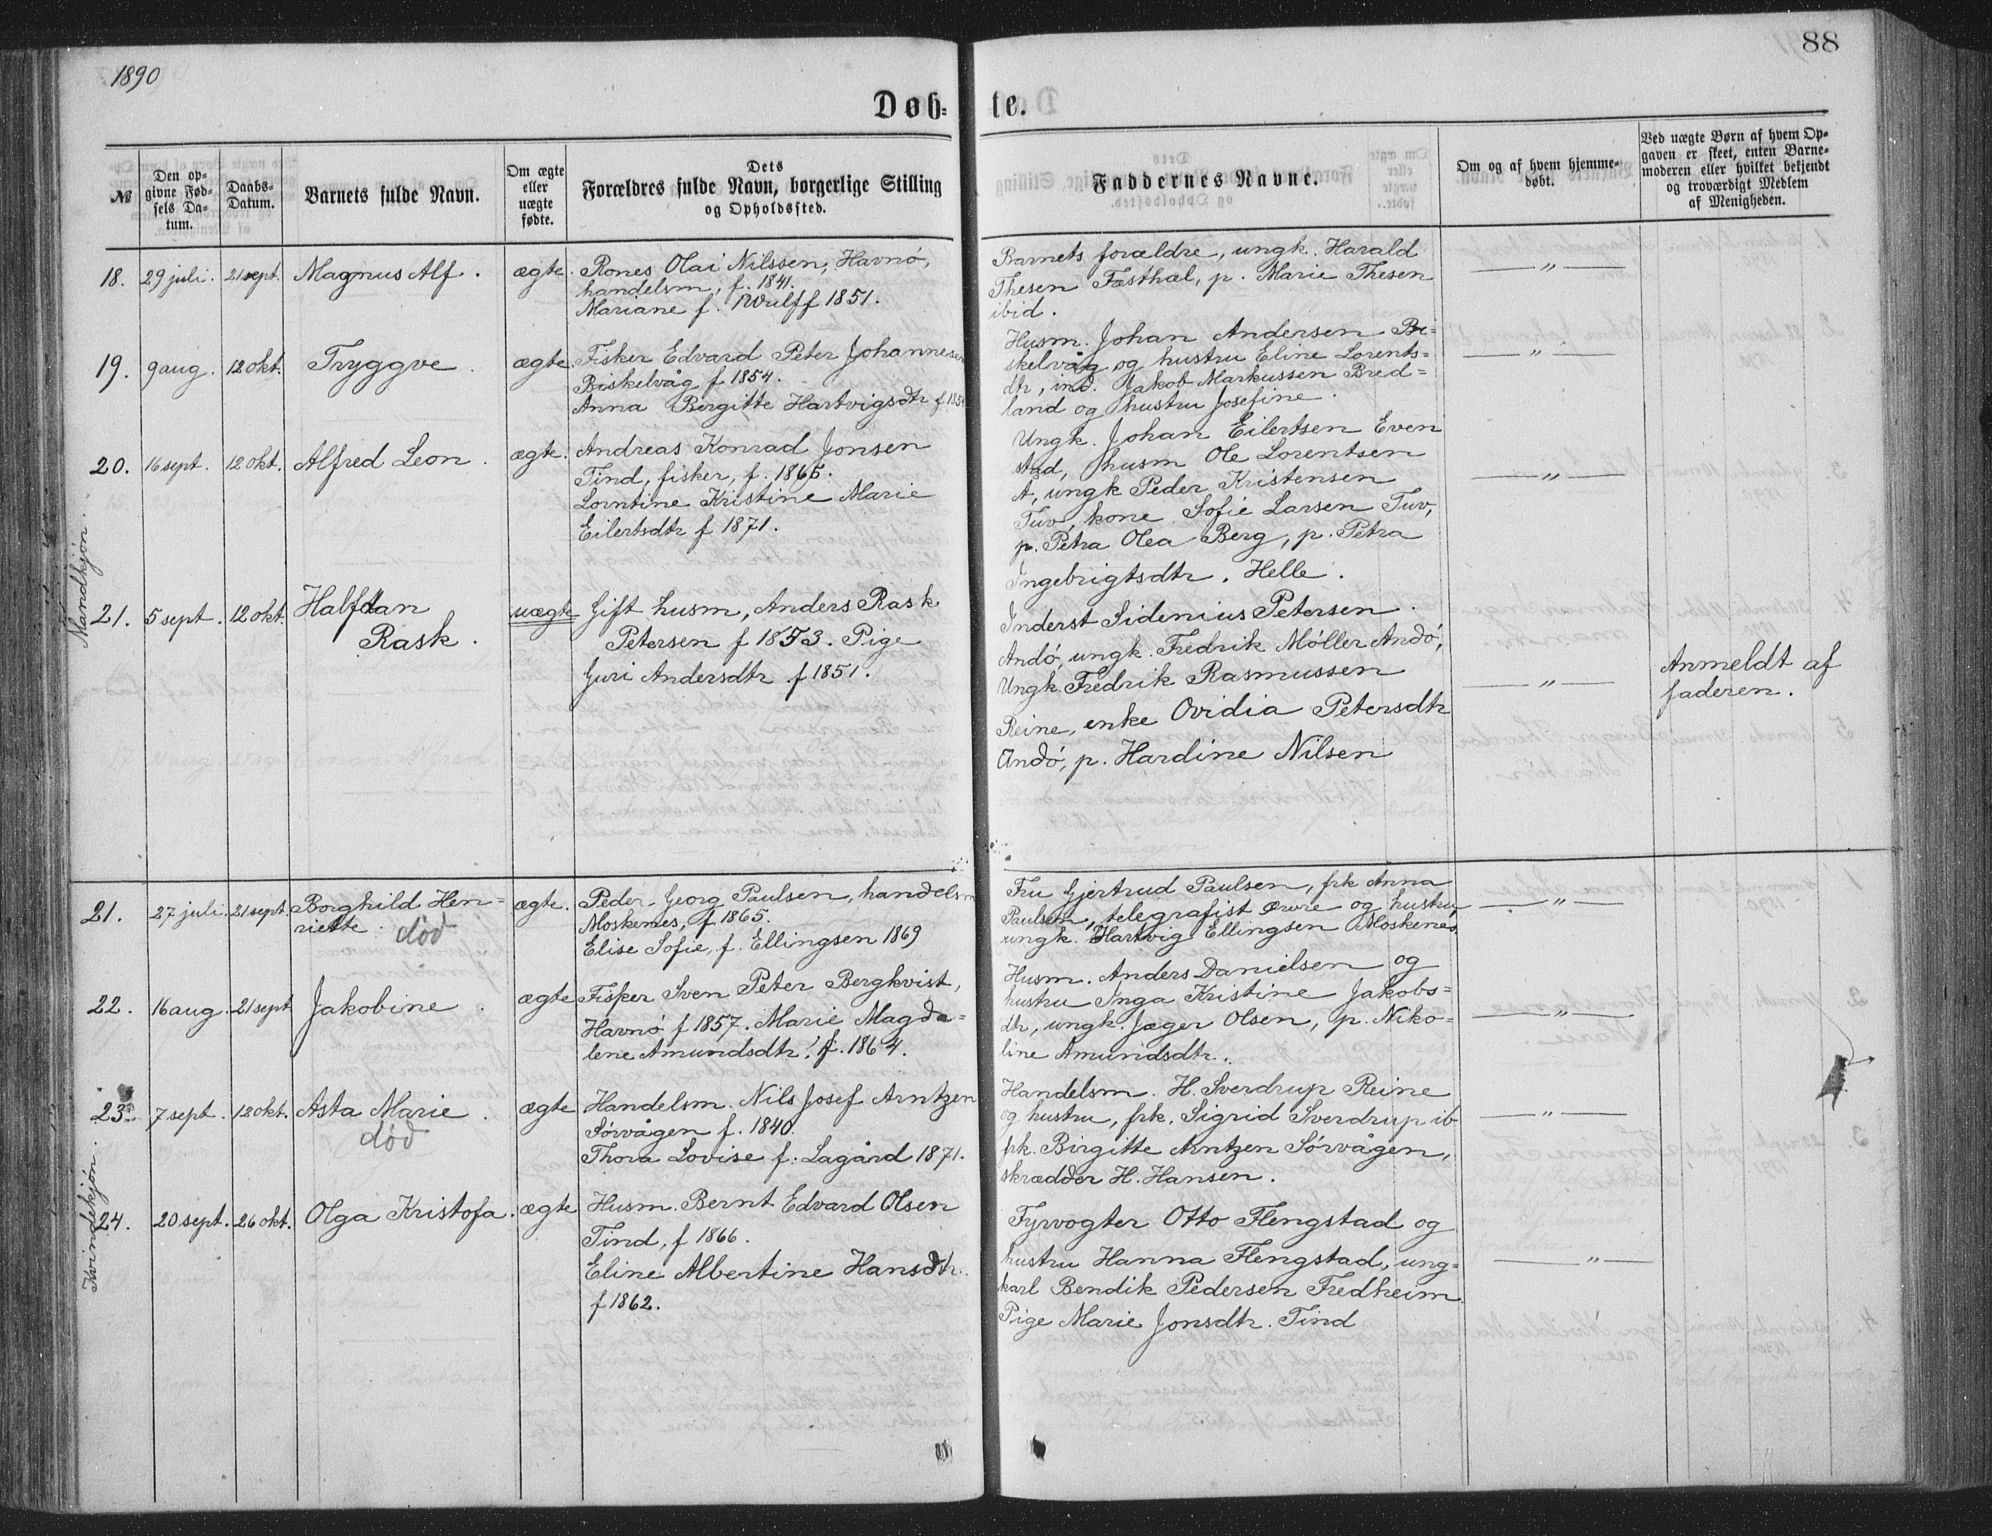 1890
88
Døb-
te.
№
Den op-
givne Fød-
sels Da-
tum.
Daabs-
Datum.
Barnets fulde Navn.
Om ægte
eller
uægte
fødte.
Dets
Forældres fulde Navn, borgerlige Stilling
og Opholdssted.
Faddernes Navne.
Om og af hvem hjemme-
døbt.
Ved uægte Børn af hvem Op-
gaven er skeet, enten Barne-
moderen eller hvilket bekjendt
og troværdigt Medlem
af Menigheden.
Mandkjøn.
18. 29 juli. 21 sept. Magnus Alf. ægte. Rones Olai Nilssen, Havnø,
handelsm, f. 1841.
Mariane f. Wulff 1851.
Barnets forældre, ungk. Harald
Thesen Fæsthæl, p. Marie Thesen
ibid.
— " —
19. 9 aug. 12 okt. Tryggve. ægte. Fisker Edvard Peter Johannesen
Biskelvåg f 1854.
Anna Birgitte Hartvigsdtr f 1854
Husm. Johan Andersen Bi-
skelvåg og hustru Eline Lorents-
dtr, ind. Jakob Markussen Bred-
land og hustru Josefine.
— " —
20. 16 sept. 12 okt. Alfred Leon. ægte. Andreas Konrad Jonsen
Tind, fisker, f. 1865.
Lorntine Kristine Marie
Eilertsdtr f 1871.
Ungk. Johan Eilertsen Even
stad, husm Ole Lorentsen
Å, ungk Peder Kristensen
Tuv, kone Sofie Larsen Tuv,
p. Petra Olea Berg, p. Petra
Ingebrigtsdtr. Helle.
— " —
21. 5 sept. 12 okt. Halfdan
Rask. uægte Gift husm, Anders Rask
Petersen f 1853. Pige
Guri Andersdtr f 1851.
Inderst Sidenius Petersen.
Andö, ungk. Fredrik Møller Andö,
Ungk. Fredrik Rasmussen
Reine, enke Ovidia Petersdtr
Andö, p. Hardine Nilsen
— " —
Anmeldt af
faderen.
Kvindekjøn.
21. 27 juli 21 sept Borghild Hen-
riette. død
ægte. Peder Georg Paulsen, handelsm
Moskenes, f 1865.
Elise Sofie, f. Ellingsen 1869
Fru Gjertrud Paulsen, frk Anna
Paulsen, telegrafist og hustru,
ungk. Hartvig Ellingsen Moskenes.
— " —
22. 16 aug. 21 sept Jakobine. ægte Fisker Sven Peter Bergkvist,
Havnø f 1857. Marie Magda-
lene Amundsdtr. f. 1864.
Husm. Anders Danielsen og
hustru Inga Kristine Jakobs-
dtr, ungk. Jæger Olsen, p. Niko-
line Amundsdtr.
— " —
23. 7 sept. 12 okt. Asta Marie.
død
ægte Handelsm. Nils Josef Arntzen
Sørvågen f. 1840.
Thora Lovise f. Lagård 1871.
Handelsm. H. Sverdrup Reine
og hustru, frk. Sigrid Sverdrup ib
frk. Birgitte Arntzen Sörvågen,
skrædder H. Hansen.
— " —
24. 20 sept. 26 okt. Olga Kristofa. ægte Husm. Bernt Edvard Olsen
Tind, f 1866.
Eline Albertine Hansdtr.
f 1862.
Fyrvogter Otto Flengstad og
hustru Hanna Flengstad, ung-
karl Bendik Pedersen Fredheim.
Pige Marie Jonsdtr. Tind
— " —